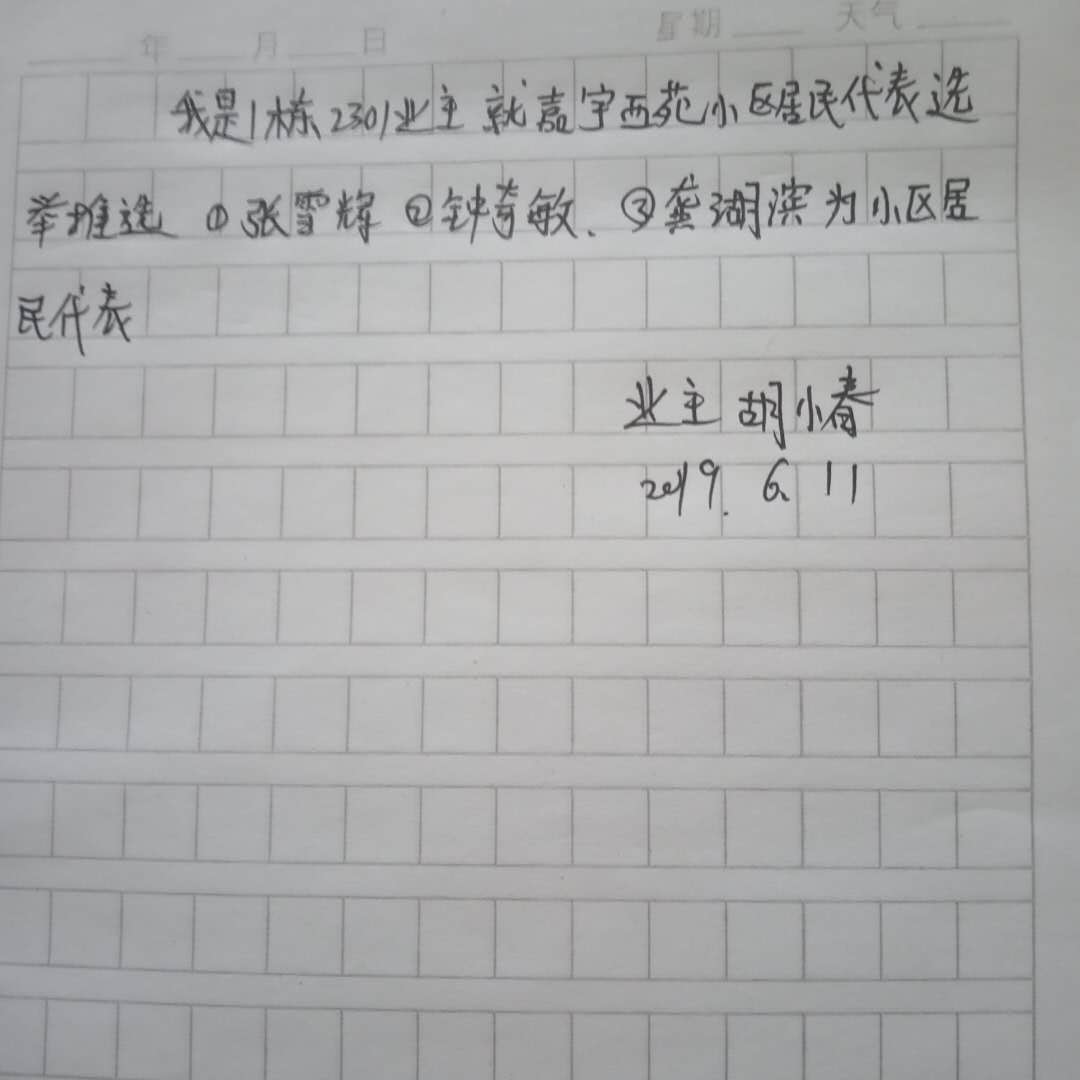 年 月 日 星期 天气
我是1栋2301业主 就嘉宇西苑小区居民代表选
举推选 ①张雪辉 ②钟奇敏、③龚湖滨为小区居
民代表
业主 胡小春
2019. 6. 11